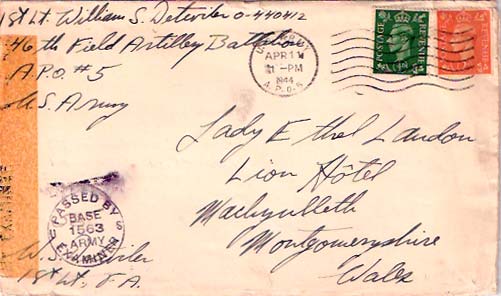 1st Lt. William S. Detwiler O-440412
46 th Field Artillery Battalion
A.P.O. #5
U.S. Army
APR 11
1-PM
1944
A.P.O. 5
POSTAGE REVENUE
POSTAGE REVENUE
Lady Ethel Landon
Lion Hôtel
Machynlleth
Montgomeryshire
Wales
PASSED BY
BASE
1563
ARMY
EXAMINER
U S
W. S. Detwiler
1st Lt. F.A.